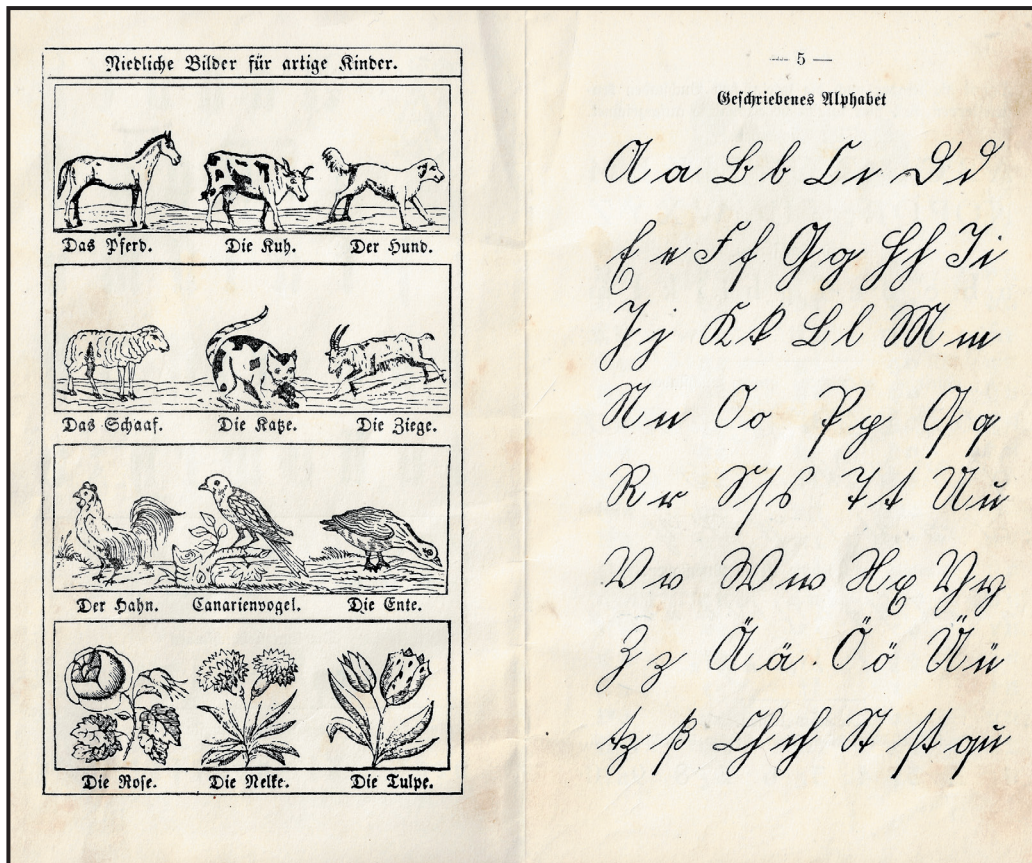 Niedliche Bilder für artige Kinder.
Das Pferd. Die Kuh. Der Hund.
Das Schaaf. Die Katze. Die Ziege.
Der Hahn. Canarienvogel. Die Ente.
Die Rose. Die Nelke. Die Tulpe.
— 5 —
Geschriebenes Alphabet
A a B b C c D d
E e F f G g H h I i
J j K k L l M m
N n O o P p Q q
R r S ſ s T t U u
V v W w X x Y y
Z z Ä ä Ö ö Ü ü
tz ß Ch ch St ſt qu